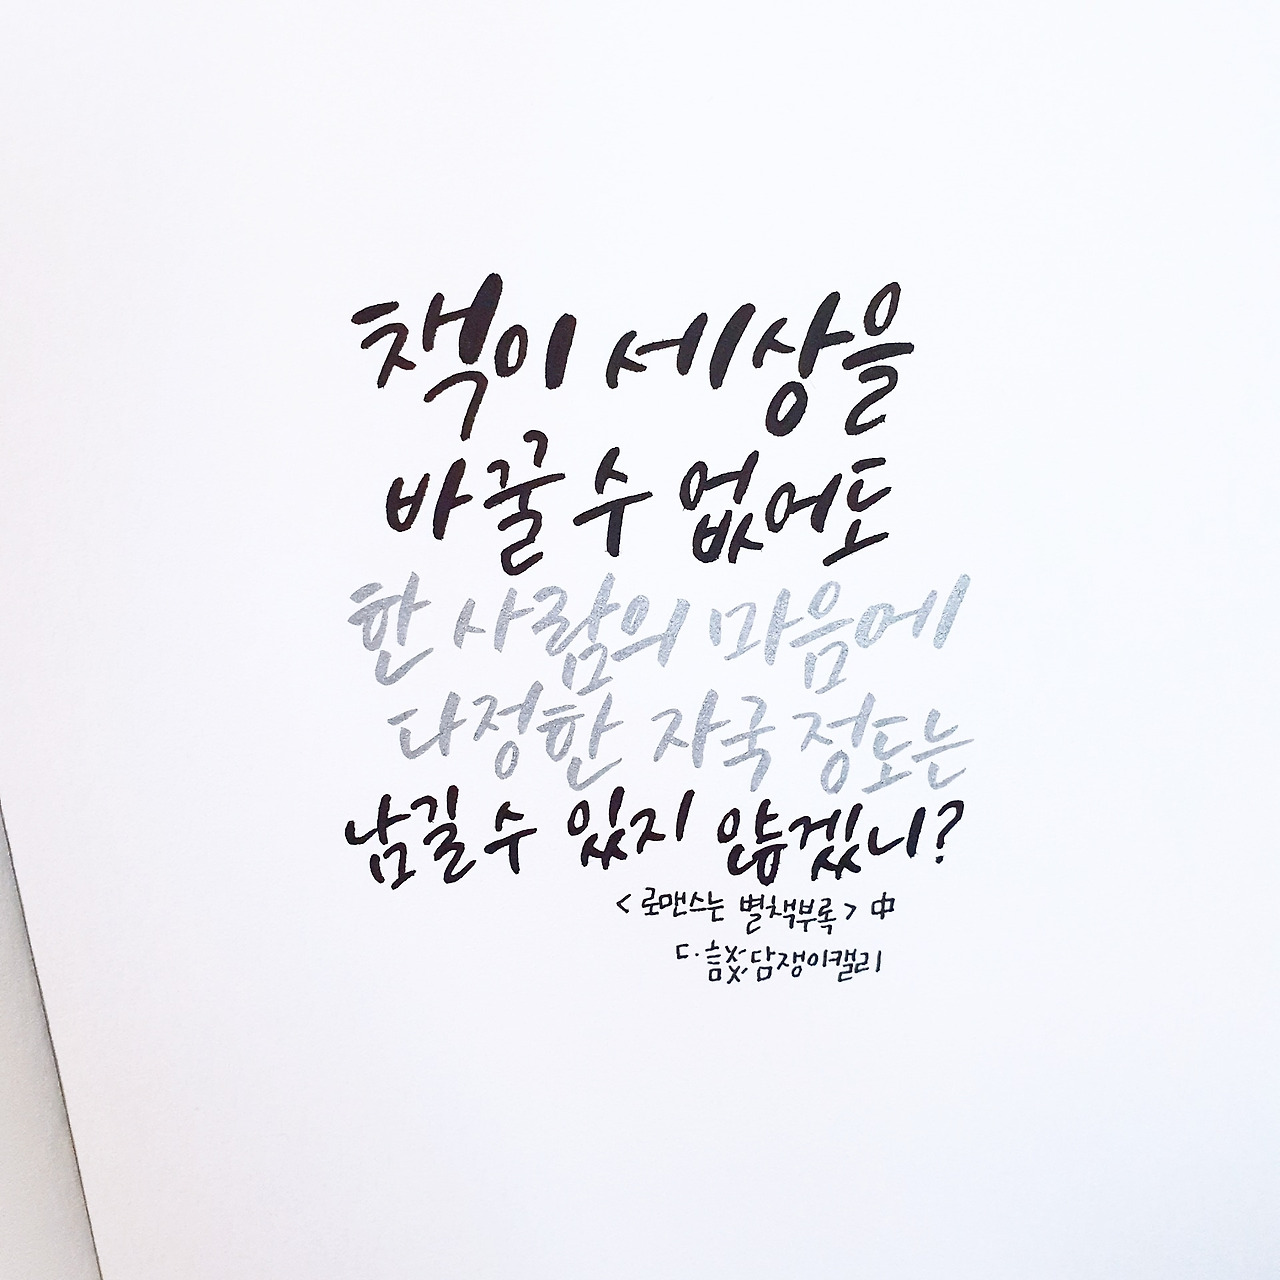 책이 세상을
바꿀 수 없어도
한 사람의 마음에
다정한 자국 정도는
남길 수 있지 않겠니?
<로맨스는 별책부록> 中
담쟁이캘리